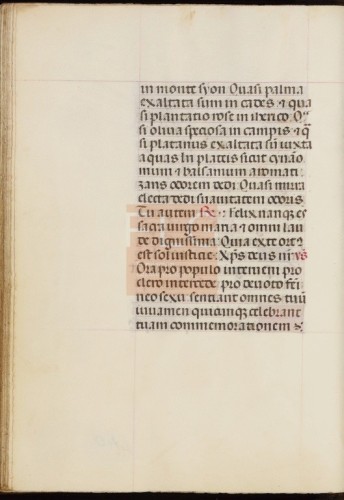 in monte syon Quasi palma
exaltata sum in cades ⁊ qua
si plantatio rose in iherico
si oliua speciosa in campis ⁊ q̄
si platanus exaltata sū iuxta
aquas In plateis sicut cynāo
mum ⁊ balsamum aromati
zans odorem dedi Quasi mirra
electa dedi suauitatem odoris
Tu autem Felix nanque es
sacra uirgo maria ⁊ omni lau
de dignissima Quia ex te ort⁹
est sol iustitie Xp̄s deus
Ora pro populo interueni pro
clero intercede pro deuoto fēi
neo sexu sentiant omnes tuū
iuuamen quicunque celebrant
tuam commemorationem